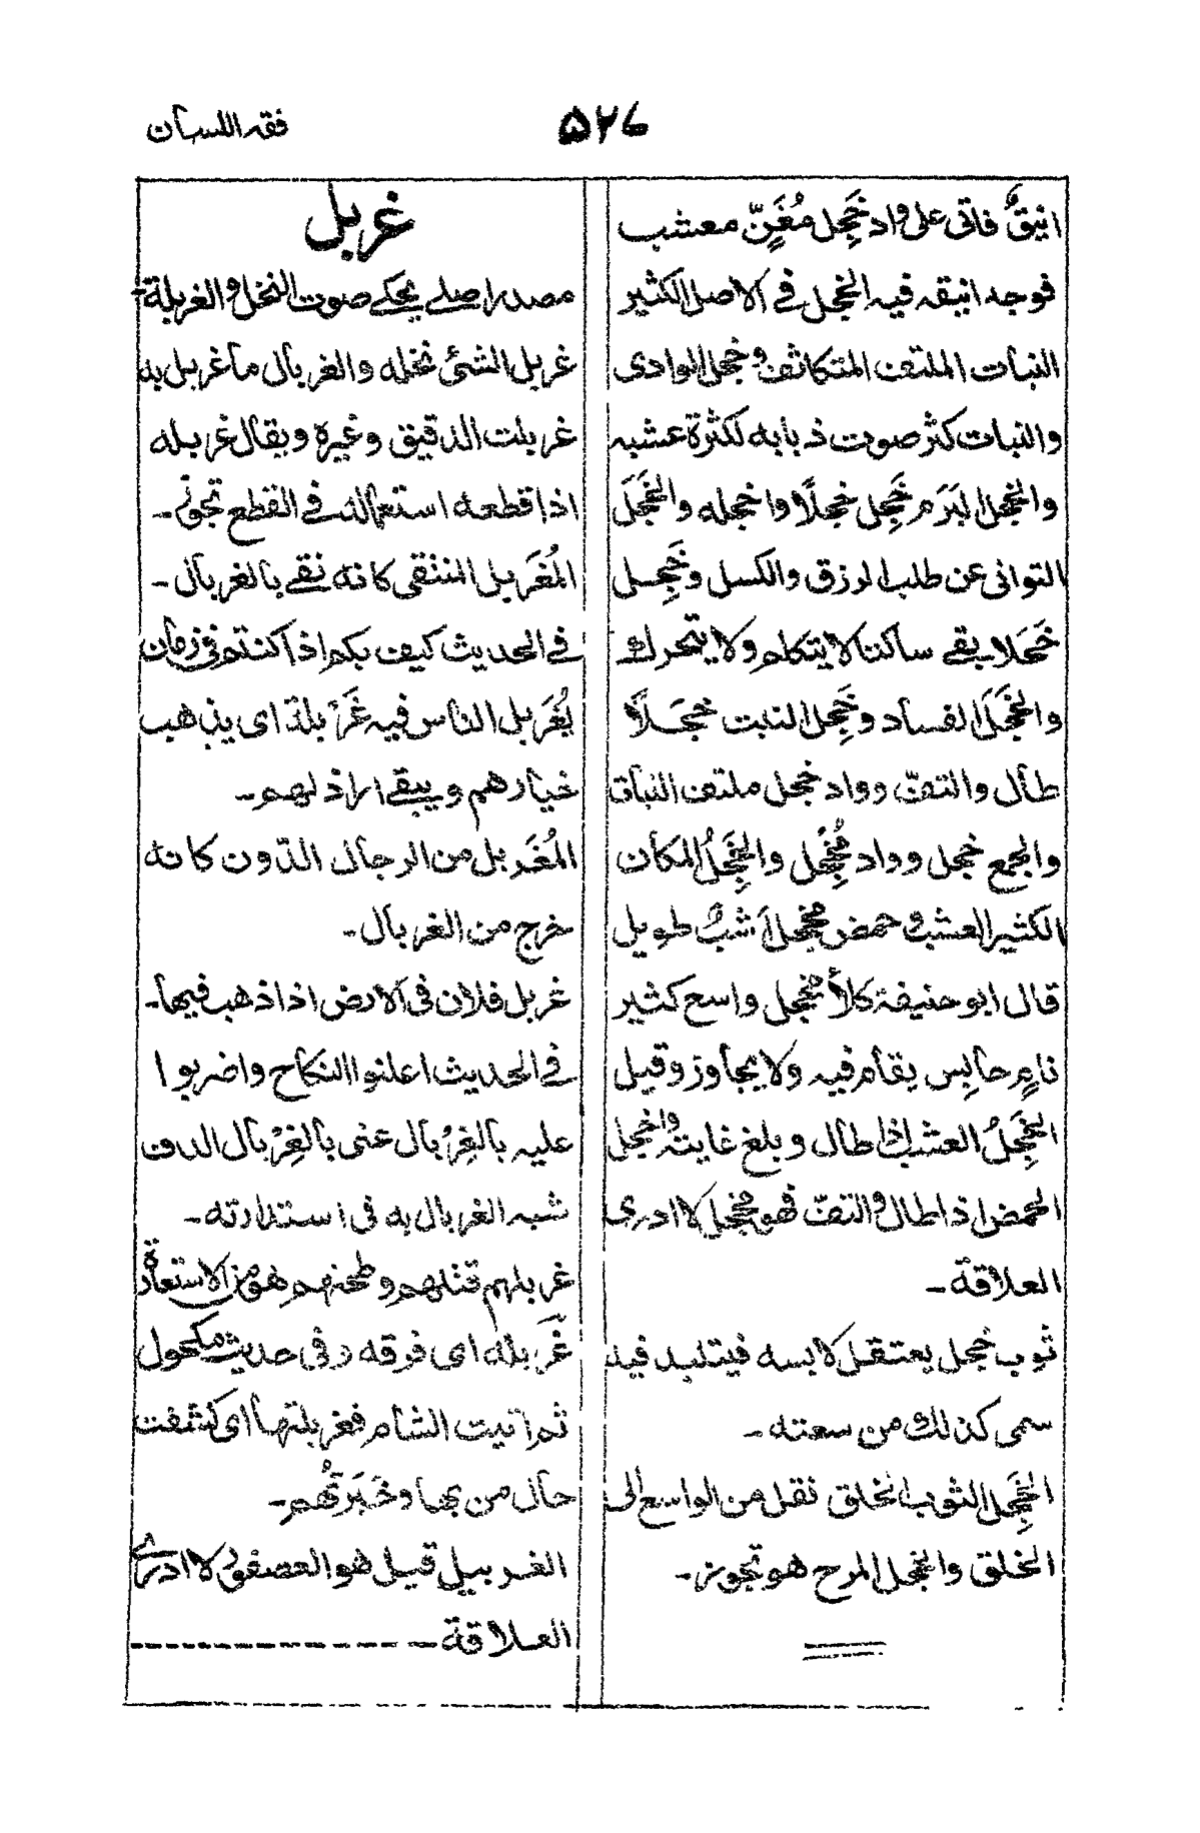 ۵۲۶
فقه اللسان
انیقٌ فاتی علی واد خَجِل مُغَنٍّ معشب
فوجد انیقه فیه الخجل فی الاصل الکثیر
النبات الملتف المتکاثف وخجل الوادی
والنبات کثر صوت ذبابه لکثرة عشبه
والخجل البَرَم خَجِل خجلًا واخجله والخَجَلَ
التوانی عن طلب الرزق والکسل وخَجِل
خَجَلا بقی ساکنا لا یتکلم ولا یتحرك
والخَجَلَ الفساد وخَجِل النبت خجَلاً
طال والتفّ وواد خجل ملتف النبات
والجمع خجل وواد مُخْجِل والخَجِلُ المکان
الکثیر العشب وحمض مخجل اشبٌ طویل
قال ابو حنیفة کلأ مخجل واسع کثیر
نامٍ حابِس یقام فیه ولا یجاوز وقیل
الخَجِلُ العشب اذا طال وبلغ غایته واخجل
الحمض اذا طال والتفّ فهو مخجل لا ادری
العلاقة۔
ثوب خجل یعتقل لابسه فیتلبد فیه
سمی کذلك من سعته۔
الخَجِل الثوب الخلق نقل من الواسع الی
الخلق والخجل المرح هو تجوز۔
غربل
مصدر اصلی یحکی صوت النخل والغربلة
غربل الشئ نخله والغربال ما غربل به
غربلت الدقیق وغیره ویقال غربله
اذا قطعه استعماله فی القطع تجوّز۔
المُغَربل المنتقی کانه نقی بالغربال۔
فی الحدیث کیف بکم اذا کنتم فی زمان
یُغَربل الناس فیه غَرْبلة ای یذهب
خیارهم ویبقی اراذلهم۔
المُغَربل من الرجال الدّون کانه
خرج من الغربال۔
غربل فلان فی الارض اذا ذهب فیها۔
فی الحدیث اعلنوا النکاح واضربوا
علیه بالغِرْبال عنی بالغِرْبال الدف
شبه الغربال به فی استدارته۔
غربلهم قتلهم وطحنهم هو من الاستعارة
غَربله ای فرقه وفی حدیث مکحول
ثم اتیت الشام فغربلتها ای کشفت
حال من بها وخَبَرتُهم۔
الغربیل قیل هو العصفور لا ادری
العلاقة۔